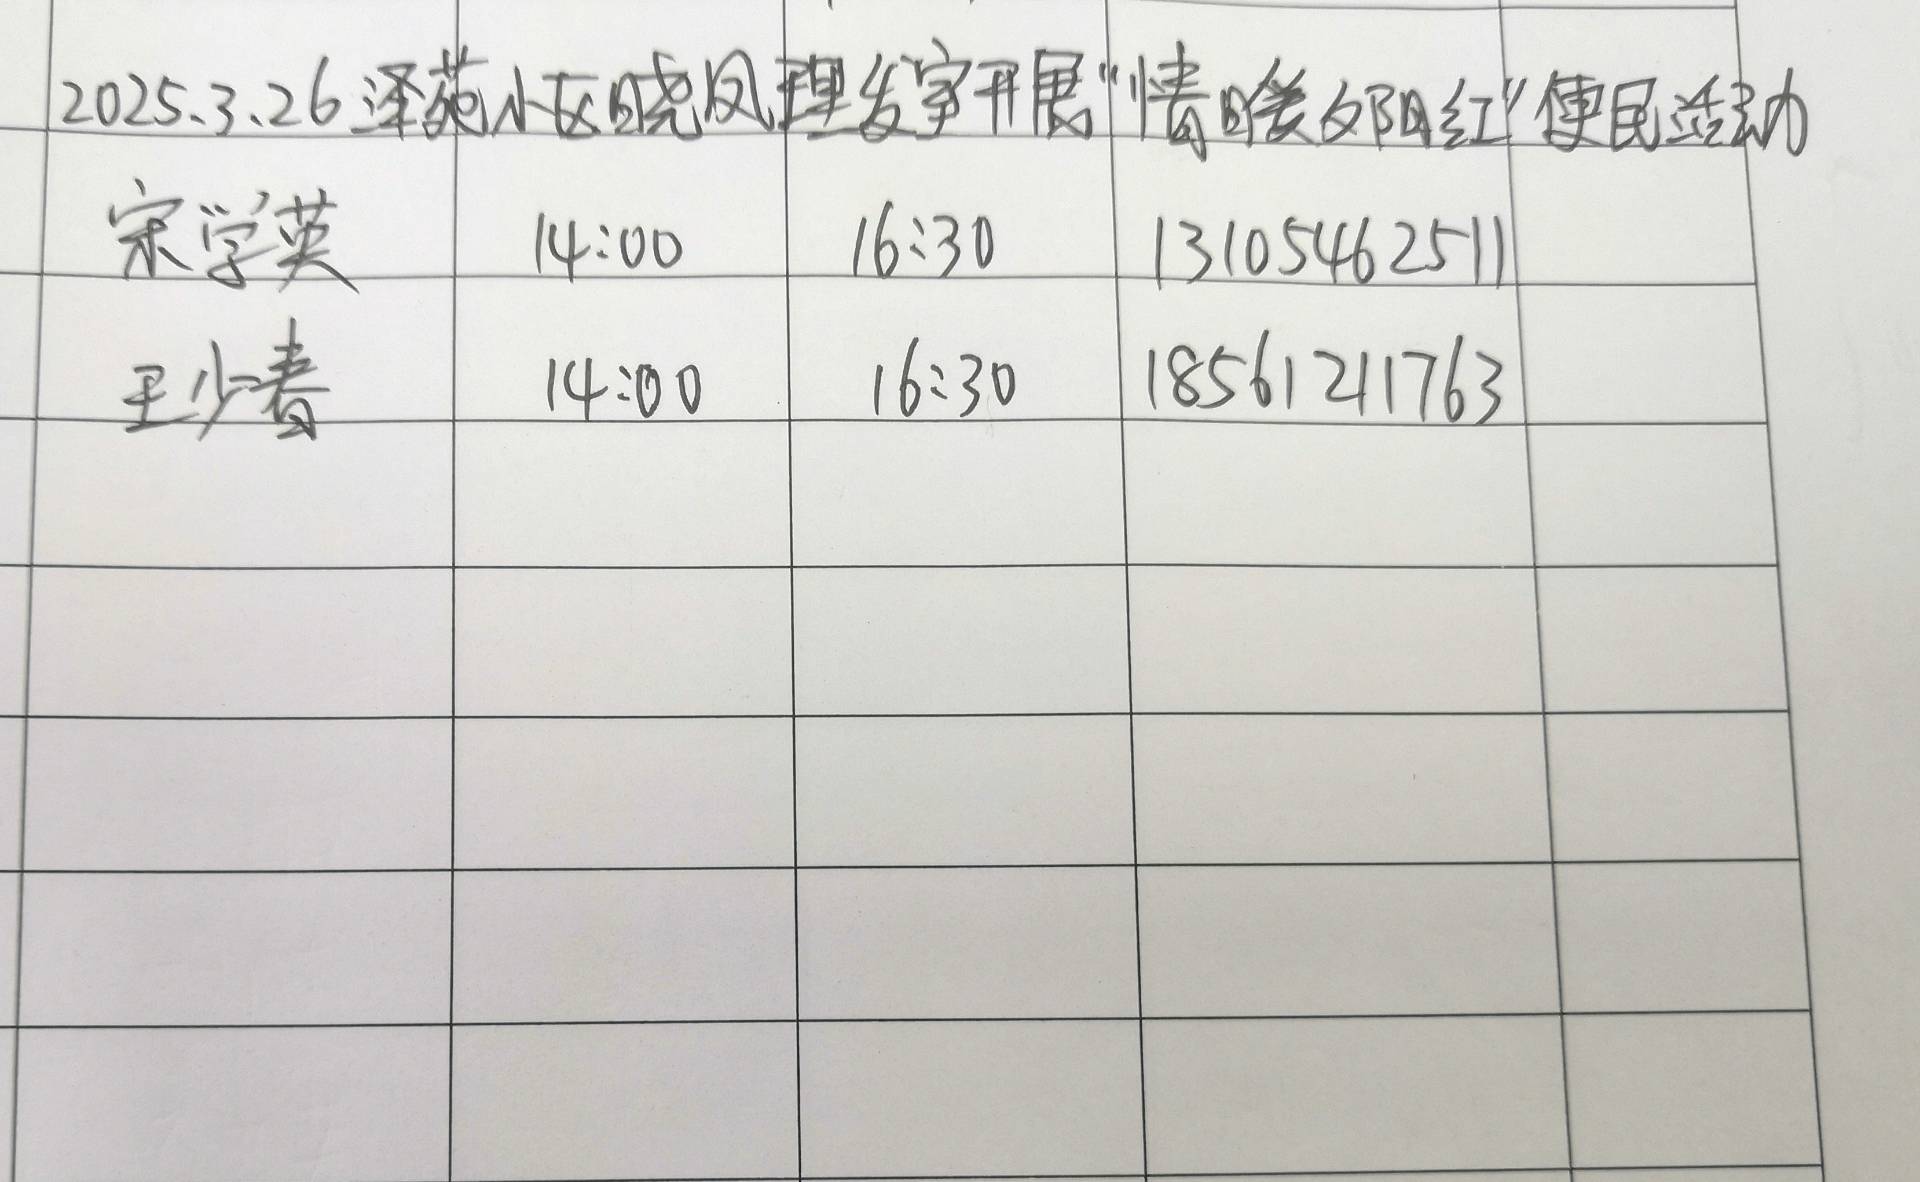 2025.3.26泽苑小区晓凤理发室开展“情暖夕阳红”便民活动
宋学英 14:00 16:30 13105462511
王少春 14:00 16:30 18561211763